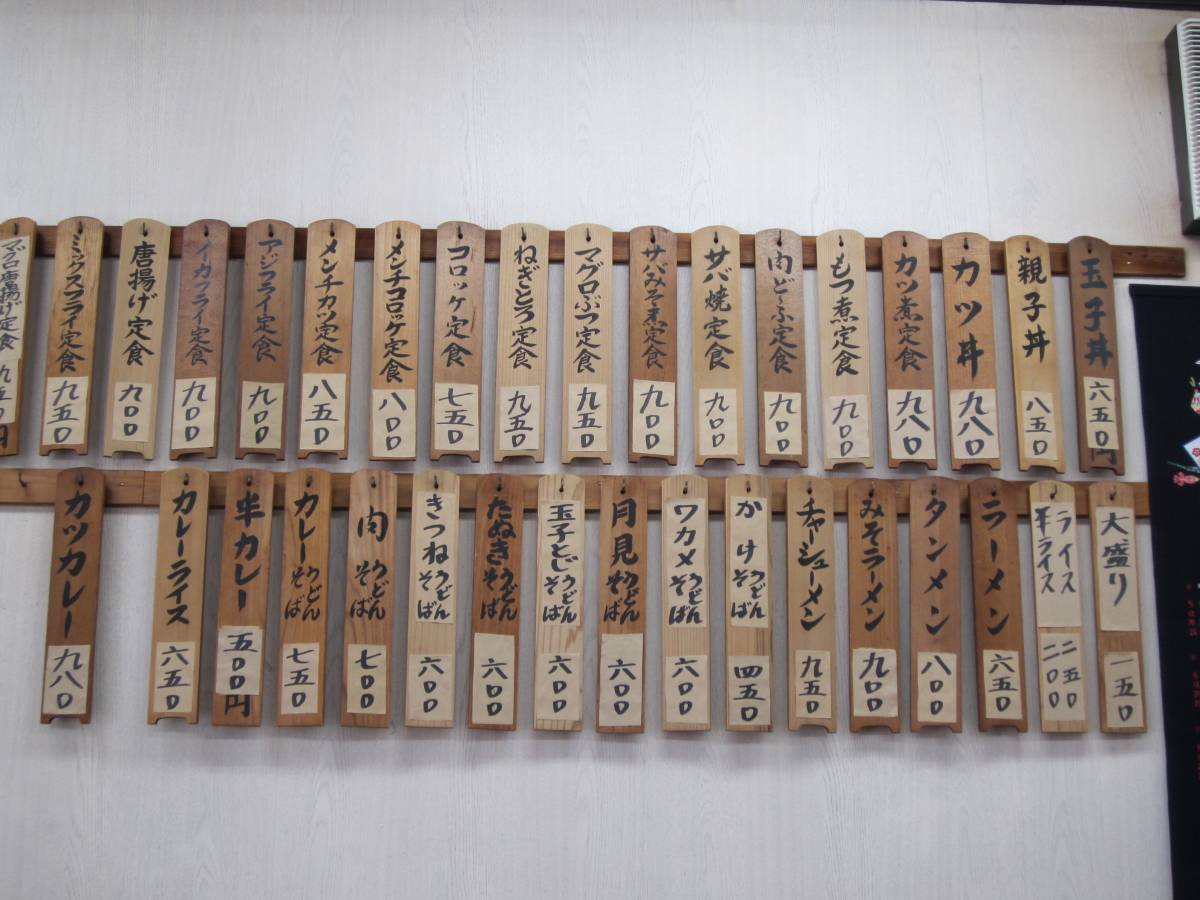 玉子丼 六五〇円
親子丼 八五〇
カツ丼 九八〇
カツ煮定食 九八〇
もつ煮定食 九〇〇
肉ど〜ふ定食 九〇〇
サバ焼定食 九〇〇
サバみそ煮定食 九〇〇
マグロぶつ定食 九五〇
ねぎとろ定食 九五〇
コロッケ定食 七五〇
メンチコロッケ定食 八〇〇
メンチカツ定食 八五〇
アジフライ定食 九〇〇
イカフライ定食 九〇〇
唐揚げ定食 九〇〇
ミックスフライ定食 九五〇
マグロ唐揚げ定食 九五〇円
大盛り 一五〇
ライス 二五〇
半ライス 二〇〇
ラーメン 六五〇
タンメン 八〇〇
みそラーメン 九〇〇
チャーシューメン 九五〇
かけうどんそば 四五〇
ワカメうどんそば 六〇〇
月見うどんそば 六〇〇
玉子とじうどんそば 六〇〇
たぬきうどんそば 六〇〇
きつねうどんそば 六〇〇
肉うどんそば 七〇〇
カレーうどんそば 七五〇
半カレー 五〇〇円
カレーライス 六五〇
カツカレー 九八〇